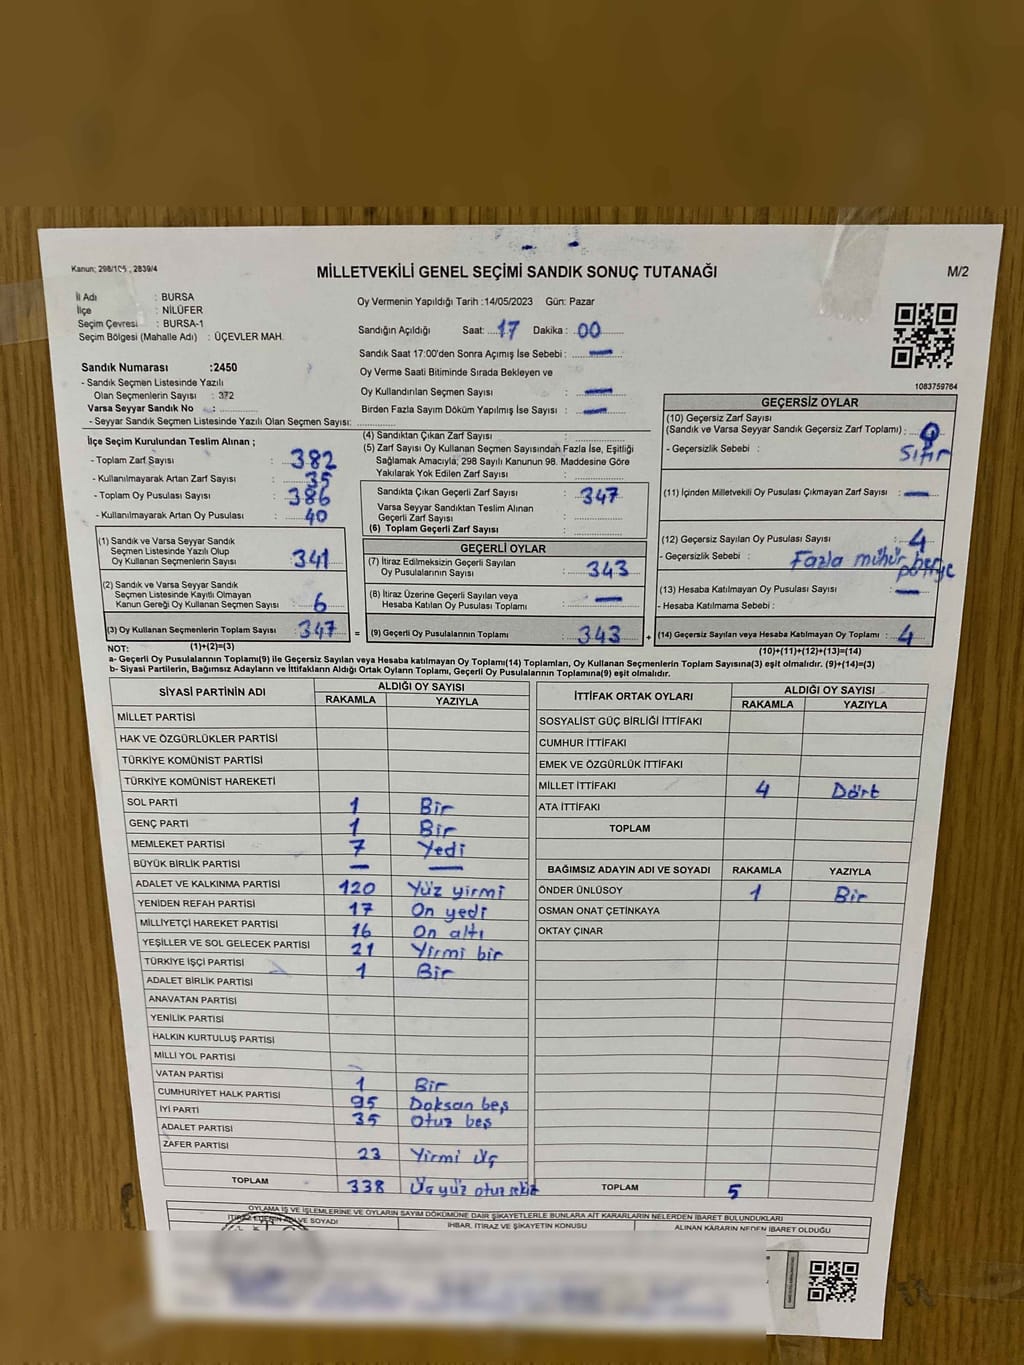 Kanun; 298/105 , 2839/4
MİLLETVEKİLİ GENEL SEÇİMİ SANDIK SONUÇ TUTANAĞI
M/2
İl Adı : BURSA
İlçe : NİLÜFER
Seçim Çevresi : BURSA-1
Seçim Bölgesi (Mahalle Adı) : ÜÇEVLER MAH.
Oy Vermenin Yapıldığı Tarih :14/05/2023 Gün: Pazar
Sandığın Açıldığı Saat: 17 Dakika : 00
Sandık Saat 17:00'den Sonra Açımış İse Sebebi : —
Oy Verme Saati Bitiminde Sırada Bekleyen ve
Oy Kullandırılan Seçmen Sayısı : —
Birden Fazla Sayım Döküm Yapılmış İse Sayısı : —
1083759764
Sandık Numarası :2450
- Sandık Seçmen Listesinde Yazılı
Olan Seçmenlerin Sayısı : 372
Varsa Seyyar Sandık No :
- Seyyar Sandık Seçmen Listesinde Yazılı Olan Seçmen Sayısı:
İlçe Seçim Kurulundan Teslim Alınan ;
- Toplam Zarf Sayısı : 382
- Kullanılmayarak Artan Zarf Sayısı : 35
- Toplam Oy Pusulası Sayısı : 386
- Kullanılmayarak Artan Oy Pusulası : 40
(1) Sandık ve Varsa Seyyar Sandık
Seçmen Listesinde Yazılı Olup
Oy Kullanan Seçmenlerin Sayısı : 341
(2) Sandık ve Varsa Seyyar Sandık
Seçmen Listesinde Kayıtlı Olmayan
Kanun Gereği Oy Kullanan Seçmen Sayısı : 6
(3) Oy Kullanan Seçmenlerin Toplam Sayısı : 347
(4) Sandıktan Çıkan Zarf Sayısı :
(5) Zarf Sayısı Oy Kullanan Seçmen Sayısından Fazla İse, Eşitliği
Sağlamak Amacıyla; 298 Sayılı Kanunun 98. Maddesine Göre
Yakılarak Yok Edilen Zarf Sayısı :
Sandıkta Çıkan Geçerli Zarf Sayısı : 347
Varsa Seyyar Sandıktan Teslim Alınan
Geçerli Zarf Sayısı :
(6) Toplam Geçerli Zarf Sayısı :
GEÇERLİ OYLAR
(7) İtiraz Edilmeksizin Geçerli Sayılan
Oy Pusulalarının Sayısı : 343
(8) İtiraz Üzerine Geçerli Sayılan veya
Hesaba Katılan Oy Pusulası Toplamı : —
= (9) Geçerli Oy Pusulalarının Toplamı : 343
GEÇERSİZ OYLAR
(10) Geçersiz Zarf Sayısı
(Sandık ve Varsa Seyyar Sandık Geçersiz Zarf Toplamı) : 0
- Geçersizlik Sebebi : Sıfır
(11) İçinden Milletvekili Oy Pusulası Çıkmayan Zarf Sayısı : —
(12) Geçersiz Sayılan Oy Pusulası Sayısı : 4
- Geçersizlik Sebebi : Fazla mühür
(13) Hesaba Katılmayan Oy Pusulası Sayısı : —
- Hesaba Katılmama Sebebi :
+ (14) Geçersiz Sayılan veya Hesaba Katılmayan Oy Toplamı : 4
NOT: (1)+(2)=(3)
(10)+(11)+(12)+(13)=(14)
a- Geçerli Oy Pusulalarının Toplamı(9) ile Geçersiz Sayılan veya Hesaba katılmayan Oy Toplamı(14) Toplamları, Oy Kullanan Seçmenlerin Toplam Sayısına(3) eşit olmalıdır. (9)+(14)=(3)
b- Siyasi Partilerin, Bağımsız Adayların ve İttifakların Aldığı Ortak Oyların Toplamı, Geçerli Oy Pusulalarının Toplamına(9) eşit olmalıdır.
SİYASİ PARTİNİN ADI ALDIĞI OY SAYISI
RAKAMLA YAZIYLA
MİLLET PARTİSİ
HAK VE ÖZGÜRLÜKLER PARTİSİ
TÜRKİYE KOMÜNİST PARTİSİ
TÜRKİYE KOMÜNİST HAREKETİ
SOL PARTİ 1 Bir
GENÇ PARTİ 1 Bir
MEMLEKET PARTİSİ 7 Yedi
BÜYÜK BİRLİK PARTİSİ — —
ADALET VE KALKINMA PARTİSİ 120 Yüz yirmi
YENİDEN REFAH PARTİSİ 17 On yedi
MİLLİYETÇİ HAREKET PARTİSİ 16 On altı
YEŞİLLER VE SOL GELECEK PARTİSİ 21 Yirmi bir
TÜRKİYE İŞÇİ PARTİSİ 1 Bir
ADALET BİRLİK PARTİSİ
ANAVATAN PARTİSİ
YENİLİK PARTİSİ
HALKIN KURTULUŞ PARTİSİ
MİLLİ YOL PARTİSİ
VATAN PARTİSİ 1 Bir
CUMHURİYET HALK PARTİSİ 95 Doksan beş
İYİ PARTİ 35 Otuz beş
ADALET PARTİSİ
ZAFER PARTİSİ 23 Yirmi üç
TOPLAM 338 Üçyüz otuz sekiz
İTTİFAK ORTAK OYLARI ALDIĞI OY SAYISI
RAKAMLA YAZIYLA
SOSYALİST GÜÇ BİRLİĞİ İTTİFAKI
CUMHUR İTTİFAKI
EMEK VE ÖZGÜRLÜK İTTİFAKI
MİLLET İTTİFAKI 4 Dört
ATA İTTİFAKI
TOPLAM
BAĞIMSIZ ADAYIN ADI VE SOYADI RAKAMLA YAZIYLA
ÖNDER ÜNLÜSOY 1 Bir
OSMAN ONAT ÇETİNKAYA
OKTAY ÇINAR
TOPLAM 5
OYLAMA İŞ VE İŞLEMLERİNE VE OYLARIN SAYIM DÖKÜMÜNE DAİR ŞİKAYETLERLE BUNLARA AİT KARARLARIN NELERDEN İBARET BULUNDUKLARI
İTİRAZ EDENİN ADI VE SOYADI İHBAR, İTİRAZ VE ŞİKAYETİN KONUSU ALINAN KARARIN NEDEN İBARET OLDUĞU